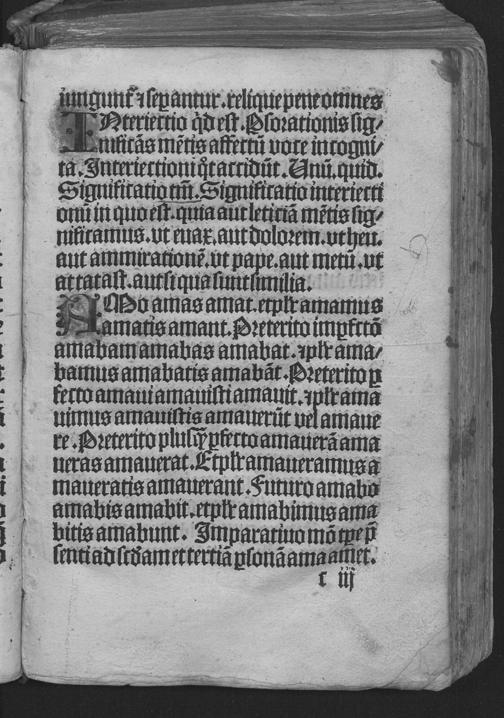 iungunt̃ ⁊ seꝑantur. relique pene omnes
INteriectio q̇d est. Ꝑs orationis sig/
nificãs mẽtis affectũ voce incogni/
ta. Interiectioni q̇t accidũt. Unũ. quid.
Significatio tm̃. Significatio interiecti
onũ in quo est. quia aut leticiã mẽtis sig/
nificamus. vt euax. aut dolorem. vt heu.
aut ammirationẽ. vt pape. aut metũ. vt
at tatast. aut si qua sunt similia.
AMo amas amat. et pl̃r amamus
amatis amant. Preterito imꝑfctõ
amabam amabas amabat. ⁊ pl̃r ama/
bamus amabatis amabãt. Preterito ꝑ
fecto amaui amauisti amauit. ⁊ pl̃r ama
uimus amauistis amauerũt vel amaue
re. Preterito plusq̃ꝑfecto amauerã ama
ueras amauerat. Et pl̃r amaueramus a
maueratis amauerant. Futuro amabo
amabis amabit. et pl̃r amabimus ama
bitis amabunt. Imparatiuo mõ tꝑe p̃
senti ad scd̃am et tertiã ꝑsonã ama amet.
c iij